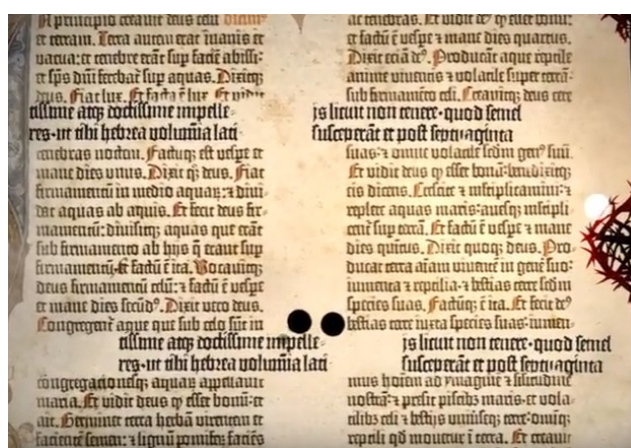 N principio creavit deus celu
et terram. Terra autem erat inanis et
vacua: et tenebre erāt sup faciē abissi:
et spūs dūi ferebat sup aquas. Dixitq;
deus. Fiat lux. Et facta ē lux. Et vidit
tissime atq; doctissime impelle-
res·ut tibi hebrea volumīa lati
tenebras noctem. Factūq; est vespe et
mane dies vnus. Dixit q; deus. Fiat
firmamentū in medio aquaꝝ: ⁊ divi-
dat aquas ab aquis. Et fecit deus fir-
mamentū: divisitq; aquas que erāt
sub firmamento ab hijs q̄ erant sup
firmamentū: et factū ē ita. Vocavitq;
deus firmamentū celū: ⁊ factū ē vespe
et mane dies secūdꝰ. Dixit vero deus.
Congregent aque que sub celo sūt in
tissime atq; doctissime impelle-
res·ut tibi hebrea volumīa lati
congregationesq; aquaꝝ appellavit
maria. Et vidit deus ꝙ esset bonū: et
ait. Germinet terra herbā virentem et
facientē semen: ⁊ lignū pomifeꝝ faciēs
ac tenebras. Et vidit deꝰ ꝙ esset bonū:
et factū ē vespe ⁊ mane dies quartus.
Dixit eciā deꝰ. Producāt aque reptile
anime viventis ⁊ volatile super terrā:
sub firmamento celi. Creavitq; deus cete
js licuit non tenere·quod semel
susceperāt et post septuaginta
suas: ⁊ omne volatile sedm genꝰ suū.
Et vidit deus ꝙ esset bonū: benedixitq;
eis dicens. Crescite ⁊ mltiplicamini: ⁊
replete aquas maris: avesq; mltipli-
cent sup terrā. Et factū ē vespe ⁊ mane
dies quitus. Dixit quoq; deus. Pro-
ducat terra aīam viventē in gene suo:
iumenta ⁊ reptilia: ⁊ bestias terre sedm
species suas. Factūq; ē ita. Et fecit deꝰ
bestias terre iuxta species suas: iumen-
js licuit non tenere·quod semel
susceperāt et post septuaginta
mus hoīem ad ymaginē ⁊ silitudinē
nostrā: ⁊ presit piscibꝫ maris: et vola-
tilibꝫ celi ⁊ bestijs vniusq; terre: omīq;
reptili qd movetur ī terra. Et creavit